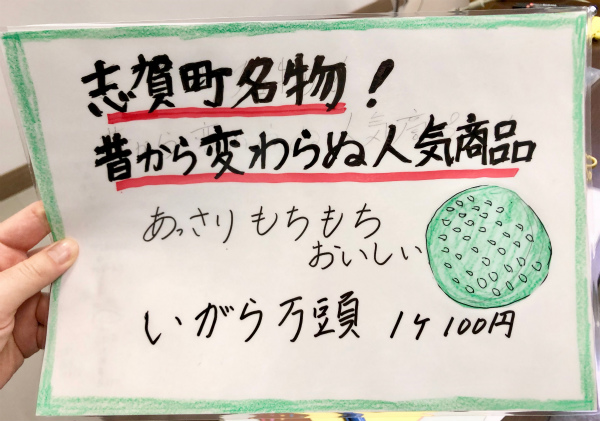 志賀町名物!
昔から変わらぬ人気商品
あっさりもちもち
おいしい
いがら万頭 1ケ100円